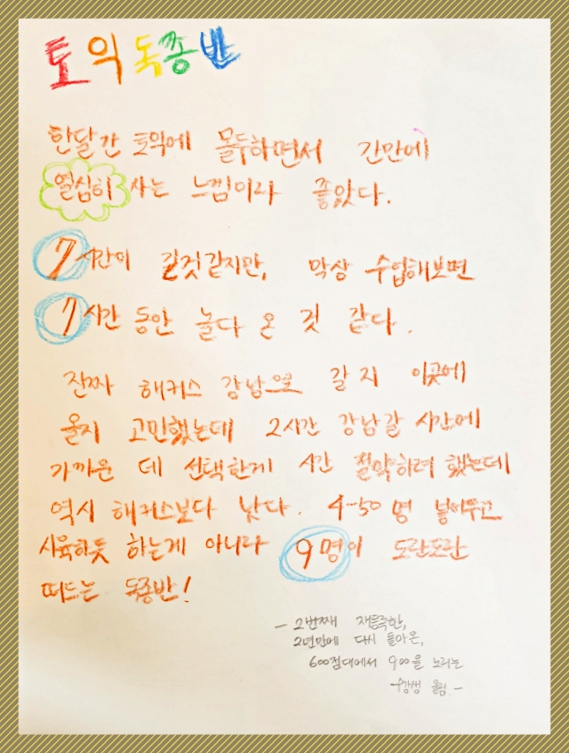 토익 독종반
한달간 토익에 몰두하면서 간만에
열심히 사는 느낌이라 좋았다.
7시간이 길것같지만, 막상 수업해보면
7시간 동안 놀다 온 것 같다.
진짜 해커스 강남으로 갈지 이곳에
올지 고민했는데 2시간 강남갈 시간에
가까운 데 선택한게 시간 절약하려 했는데
역시 해커스보다 낫다. 4~50명 넣어두고
사육하듯 하는게 아니라 9명이 도란도란
떠드는 독종반!
- 2번째 재등록한,
2년만에 다시 돌아온,
600점대에서 900을 노리는
수강생 올림. -